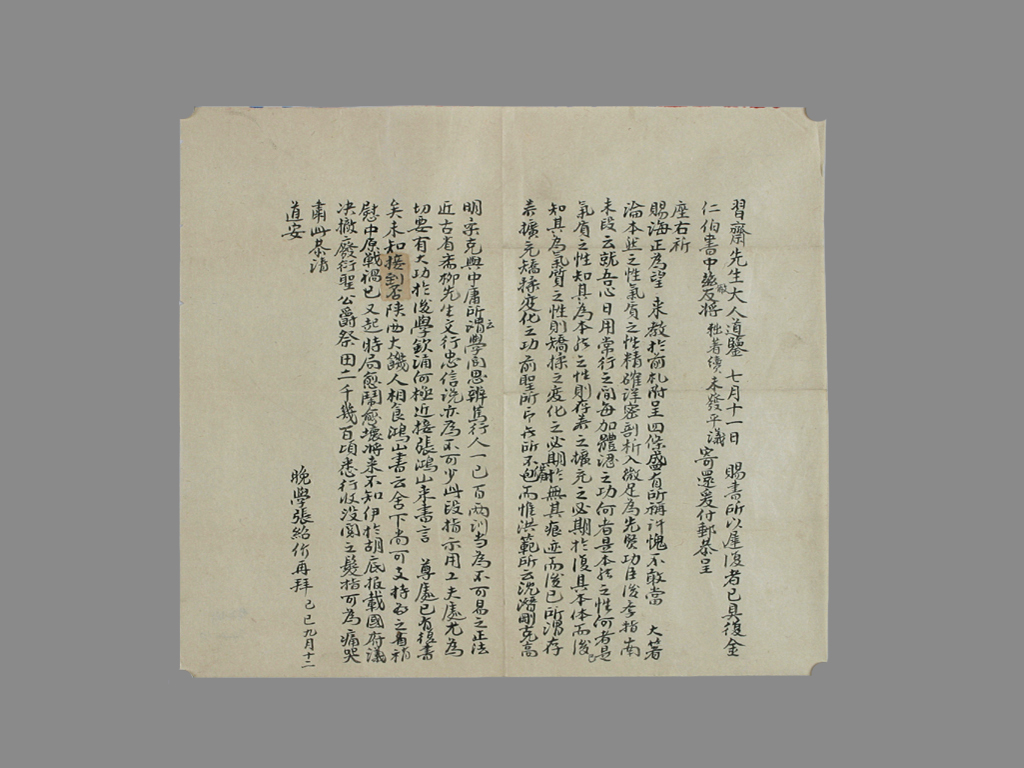 習齋先生大人道鑒 七月十一日 賜書所以遲復者已具復金
仁伯書中 敝友將拙著續未發平議寄還爰付郵恭呈
座右祈
賜海正為望 来教於前札附呈四條盛有所稱許愧不敢當 大著
論本然之性氣質之性精確詳密剖析入微足為先賢功臣後學指南
末段云就吾心日用常行之間每加體認之功何者是本然之性何者是
氣質之性知其為本然之性則存養之擴充之必期於復其本体而後已
知其為氣質之性則矯揉之變化之必期於無其痕迹而後已所謂存
養擴充矯揉變化之功前聖所言無所不包而惟洪範所云沈潛剛克高
明柔克與中庸所謂學問思辨篤行人一己百云云兩訓当為不可易之正法
近古省齋柳先生文行忠信説亦為不可少此段指示用工夫處尤為
切要有大功於後學欽涌何極近接張鴻山来書言 尊處已有復書
矣未知接到否陝西大饑人相食鴻山書云舍下尚可支持為之省稍
慰中原戰禍已又起時局愈鬧愈壞將来不知伊於胡底报載國府議
决撤廢衍聖公爵祭田二千幾百頃悉行收没閱之髮指可為痛哭
肅此恭清
道安
晚學張紹价再拜 己巳九月十二